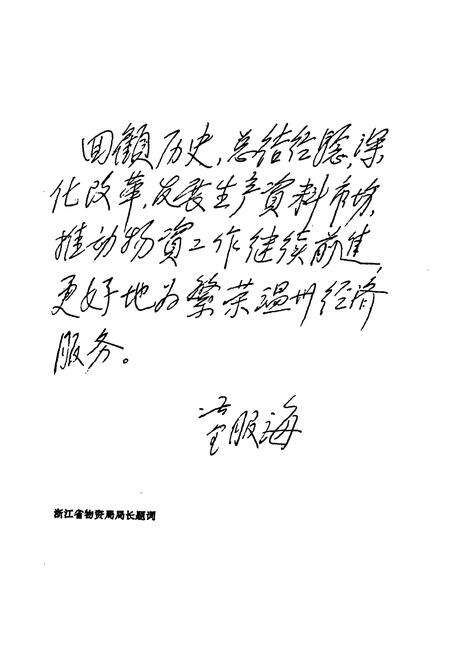 回顧历史，总结经验，深
化改革，发展生产資料市场，
推动物資工作继续前进，
更好地为繁荣温州经济
服务。
服海
浙江省物资局局长题词